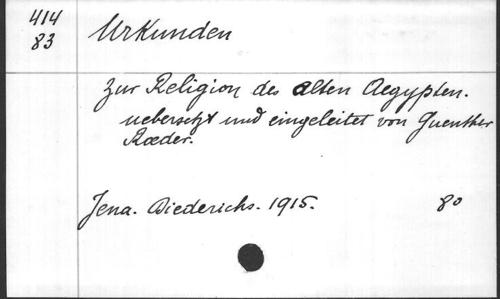 414
83
Urkunden
zur Religion des alten Aegypten.
uebersetzt und eingeleitet von Guenther
Roeder.
Jena. Diederichs. 1915. 80